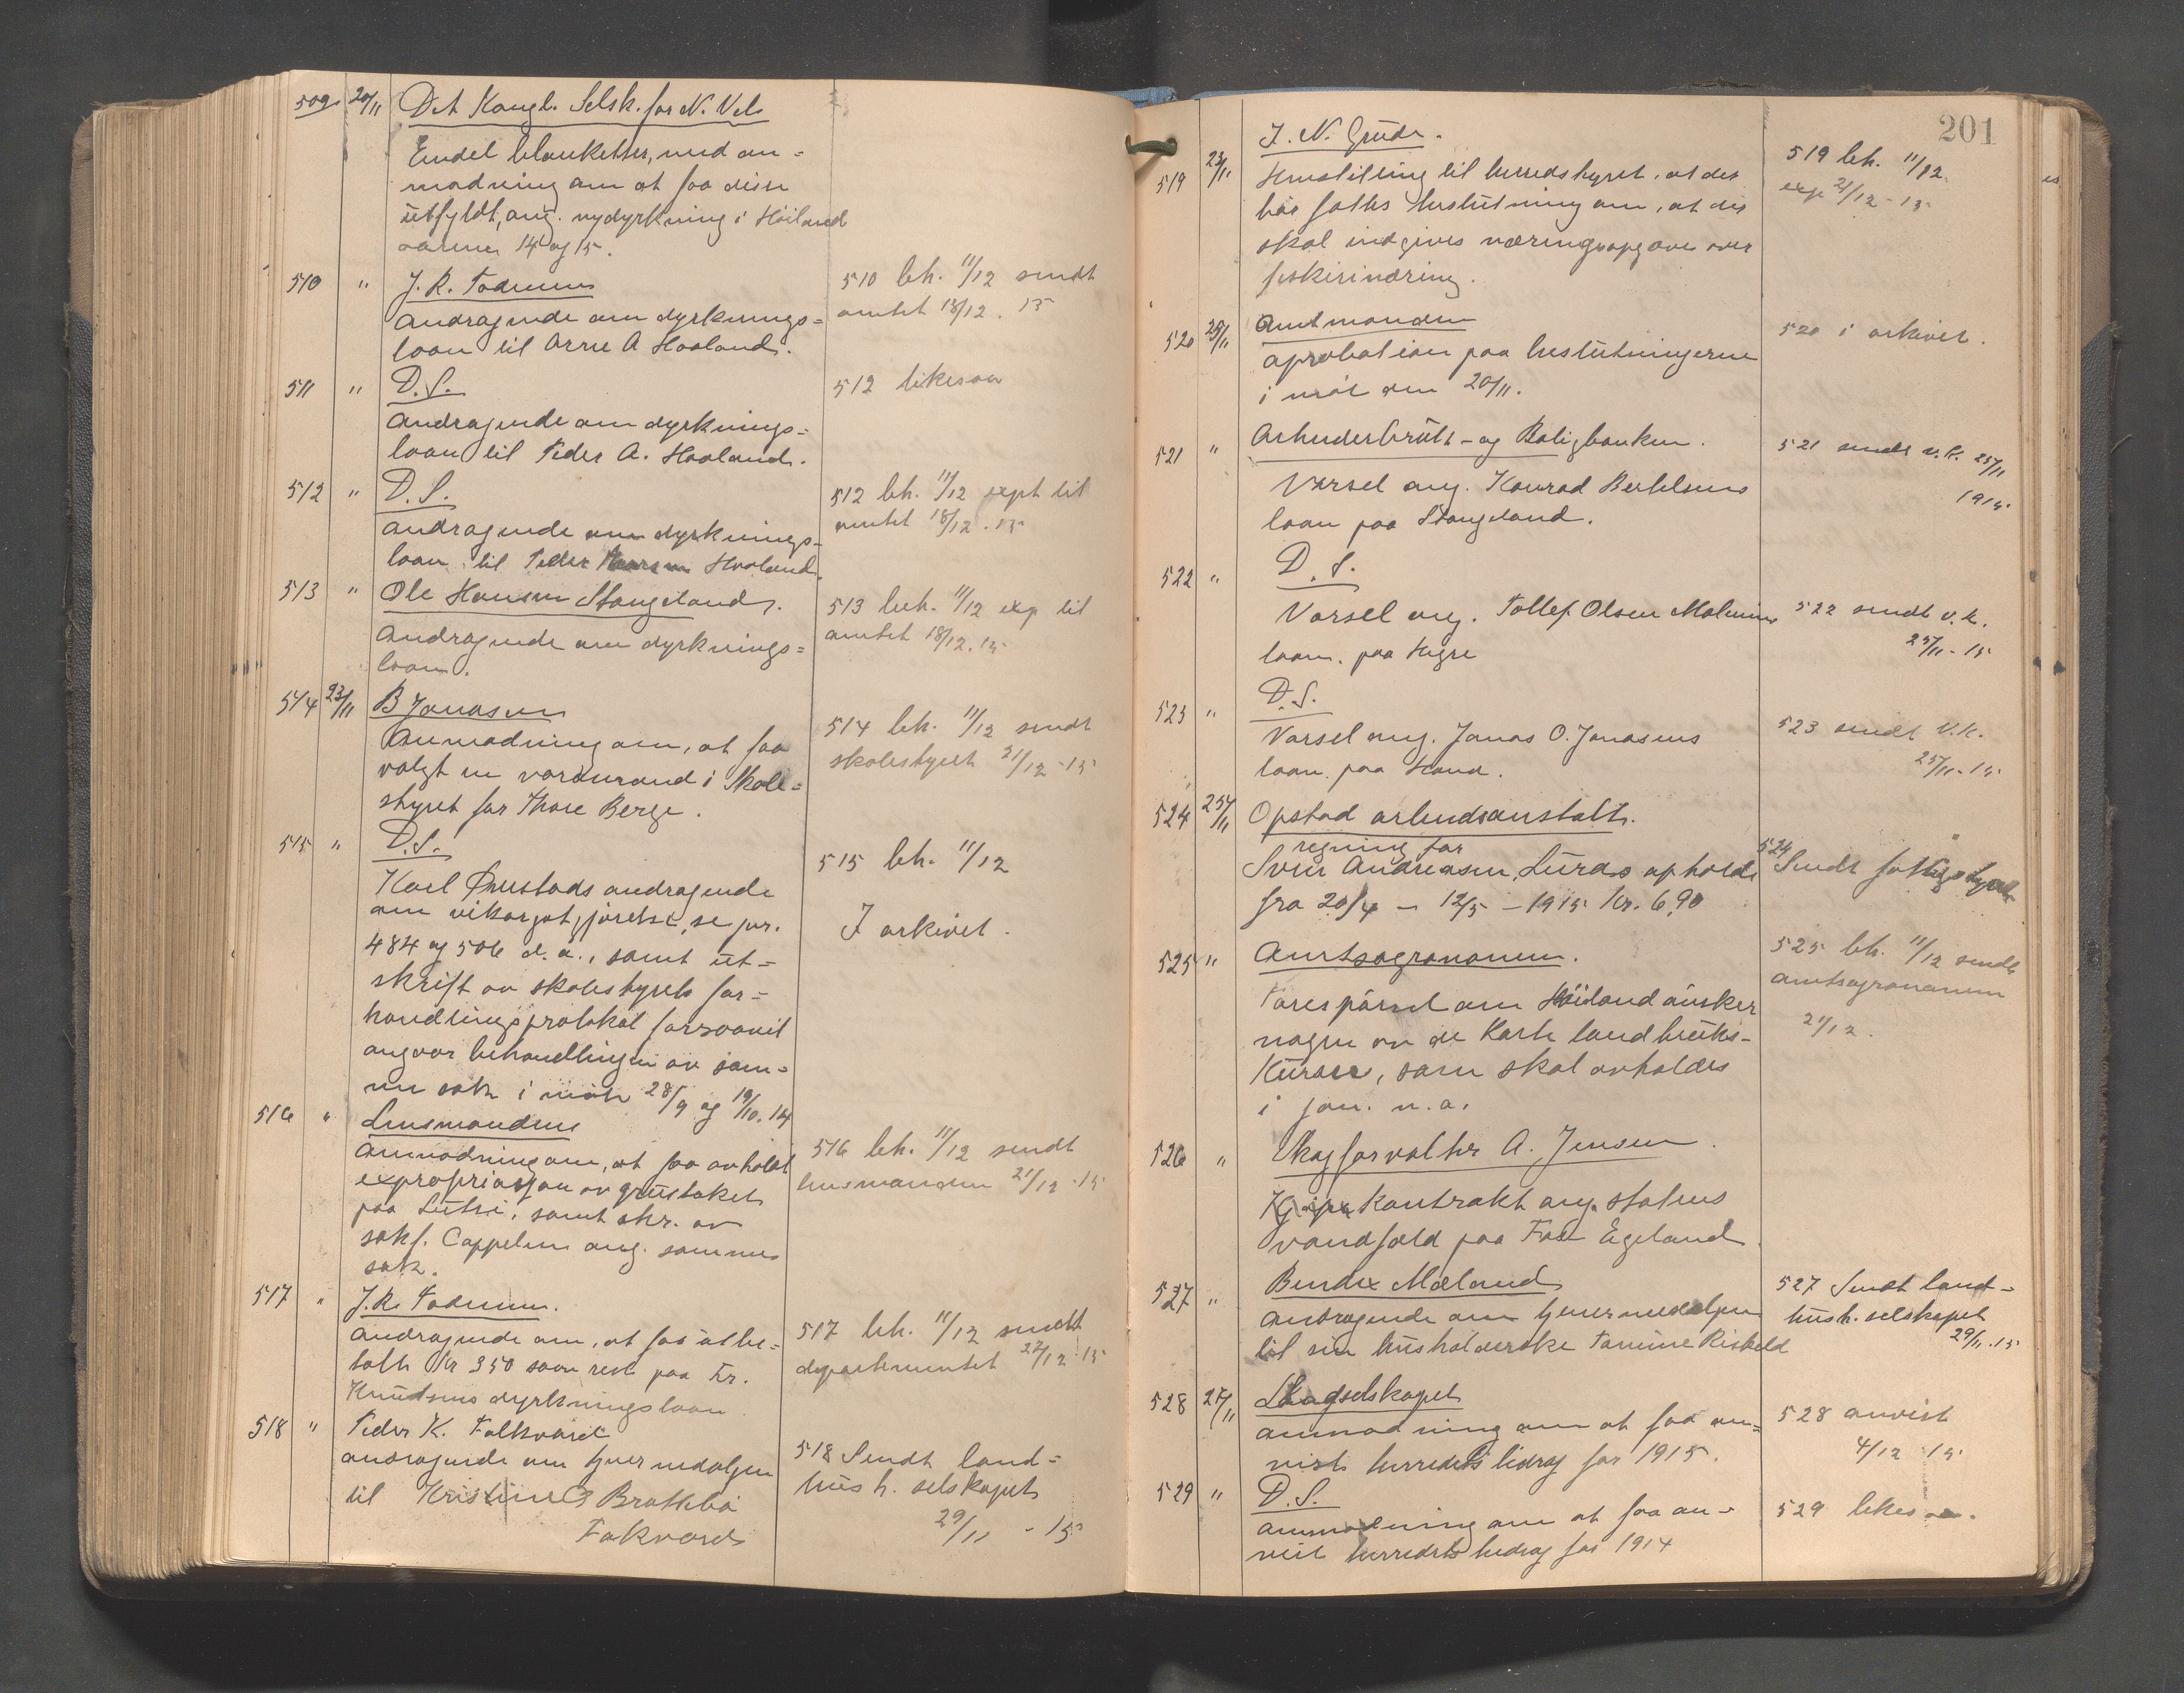 509 20/11 Det Kongl. Selsk. for N. Vel.
Endel blanketter, med an=
modning om at faa disse
utfyldt, ang. nydyrkning i Höiland
aarene 14 og 15.
510 " J. R. Foderum
Andragende om dyrknings=
laan til Arne A Hooland.
510 beh. 11/12 sendt
amtet 18/12. 15
511 " D. S.
Andragende om dyrknings=
laan til Peder A. Hooland.
512 likesaa
512 " D. S.
Andragende om dyrknings-
laan til Peder Hooland.
512 beh. 11/12 expt til
amtet 18/12. 15
513 " Ole Hansen Stangeland.
Andragende om dyrknings=
laan.
513 beh. 11/12 exp til
amtet 18/12. 15
514 23/11 B Jonasen
Anmodning om, at faa
valgt en varamand i Skole=
styret for Thore Berge.
514 beh. 11/12 sendt
skolestyret 21/12 - 15
515 " D. S.
Karl Ørrestads andragende
om vikargotgjörelse, se jnr.
484 og 506 d. a., samt ut=
skrift av skolestyrets for=
handlingsprotokol forsaavit
angaar behandlingen av sam=
me sak i möte 28/9 og 19/10. 14
515 beh. 11/12
I arkivet.
516 " Lensmanden
Anmodning om, at faa avholdt
expropriasjon av grustaket
paa Lutsi, samt skr. av
sakf. Cappelen ang. samme
sak.
516 beh. 11/12 sendt
lensmanden 21/12 - 15
517 " J. R. Foderum.
Andragende om, at faa utbe=
talt Kr 350 som rest paa Fr.
Knudsens dyrkningslaan.
517 beh. 11/12 sendt
departementet 27/12 - 15
518 " Peder K. Folkvord
andragende om tjenermedaljen
til Kristine Brattebö
Folkvord
518 Sendt land=
hush. selskapet
29/11 - 15
201
519 23/11 I. N. Grude.
Henstilling til herredstyret, at det
bör fattes beslutning om, at der
skal indgives næringsopgave over
fiskerinæring.
519 beh. 11/12
exp 21/12 - 15
520 25/11 Amtmanden
aprobation paa beslutningerne
i möt den 20/11.
520 i arkivet.
521 " Arbeiderbruk- og Boligbanken.
Varsel ang. Konrad Bertelsens
laan paa Stangeland.
521 sendt v.k. 25/11
1915.
522 " D. S.
Varsel ang. Tollef Olsen Malmins
laan. paa Hegre
522 sendt v. k.
25/11 - 15
523 " D. S.
Varsel ang. Jonas O. Jonasens
laan. paa Hana.
523 sendt v.k.
25/11 - 15
524 25/11 Opstad arbeidsanstalt.
regning for
Svein Andreasen Lurds ophold
fra 20/4 - 12/5 - 1915 kr. 6,90
524
Sendt fattigstyret
525 " Amtsagronomen.
Forespörsel om Höiland önsker
nogen av de korte landbruks-
kurser, som skal avholdes
i jan. n. a.
525 beh. 11/12 sendt
amtsagronomen
21/12.
526 " Skogforvalter A. Jensen.
Kjöpe kontrakt ang. statens
vandfald paa Fed Egeland.
527 " Bendix Mæland
Andragende om tjenermedaljen
til sin husholderske Tomine Riskeld
527 Sendt land-
hush. selskapet
29/11. 15
528 27/11 Skogselskapet
anmodning om at faa an=
vist herredets bidrag for 1915.
528 anvist
4/12 - 15
529 " D. S.
anmodning om at faa an-
vist herredets bidrag for 1914
529 likesaa.